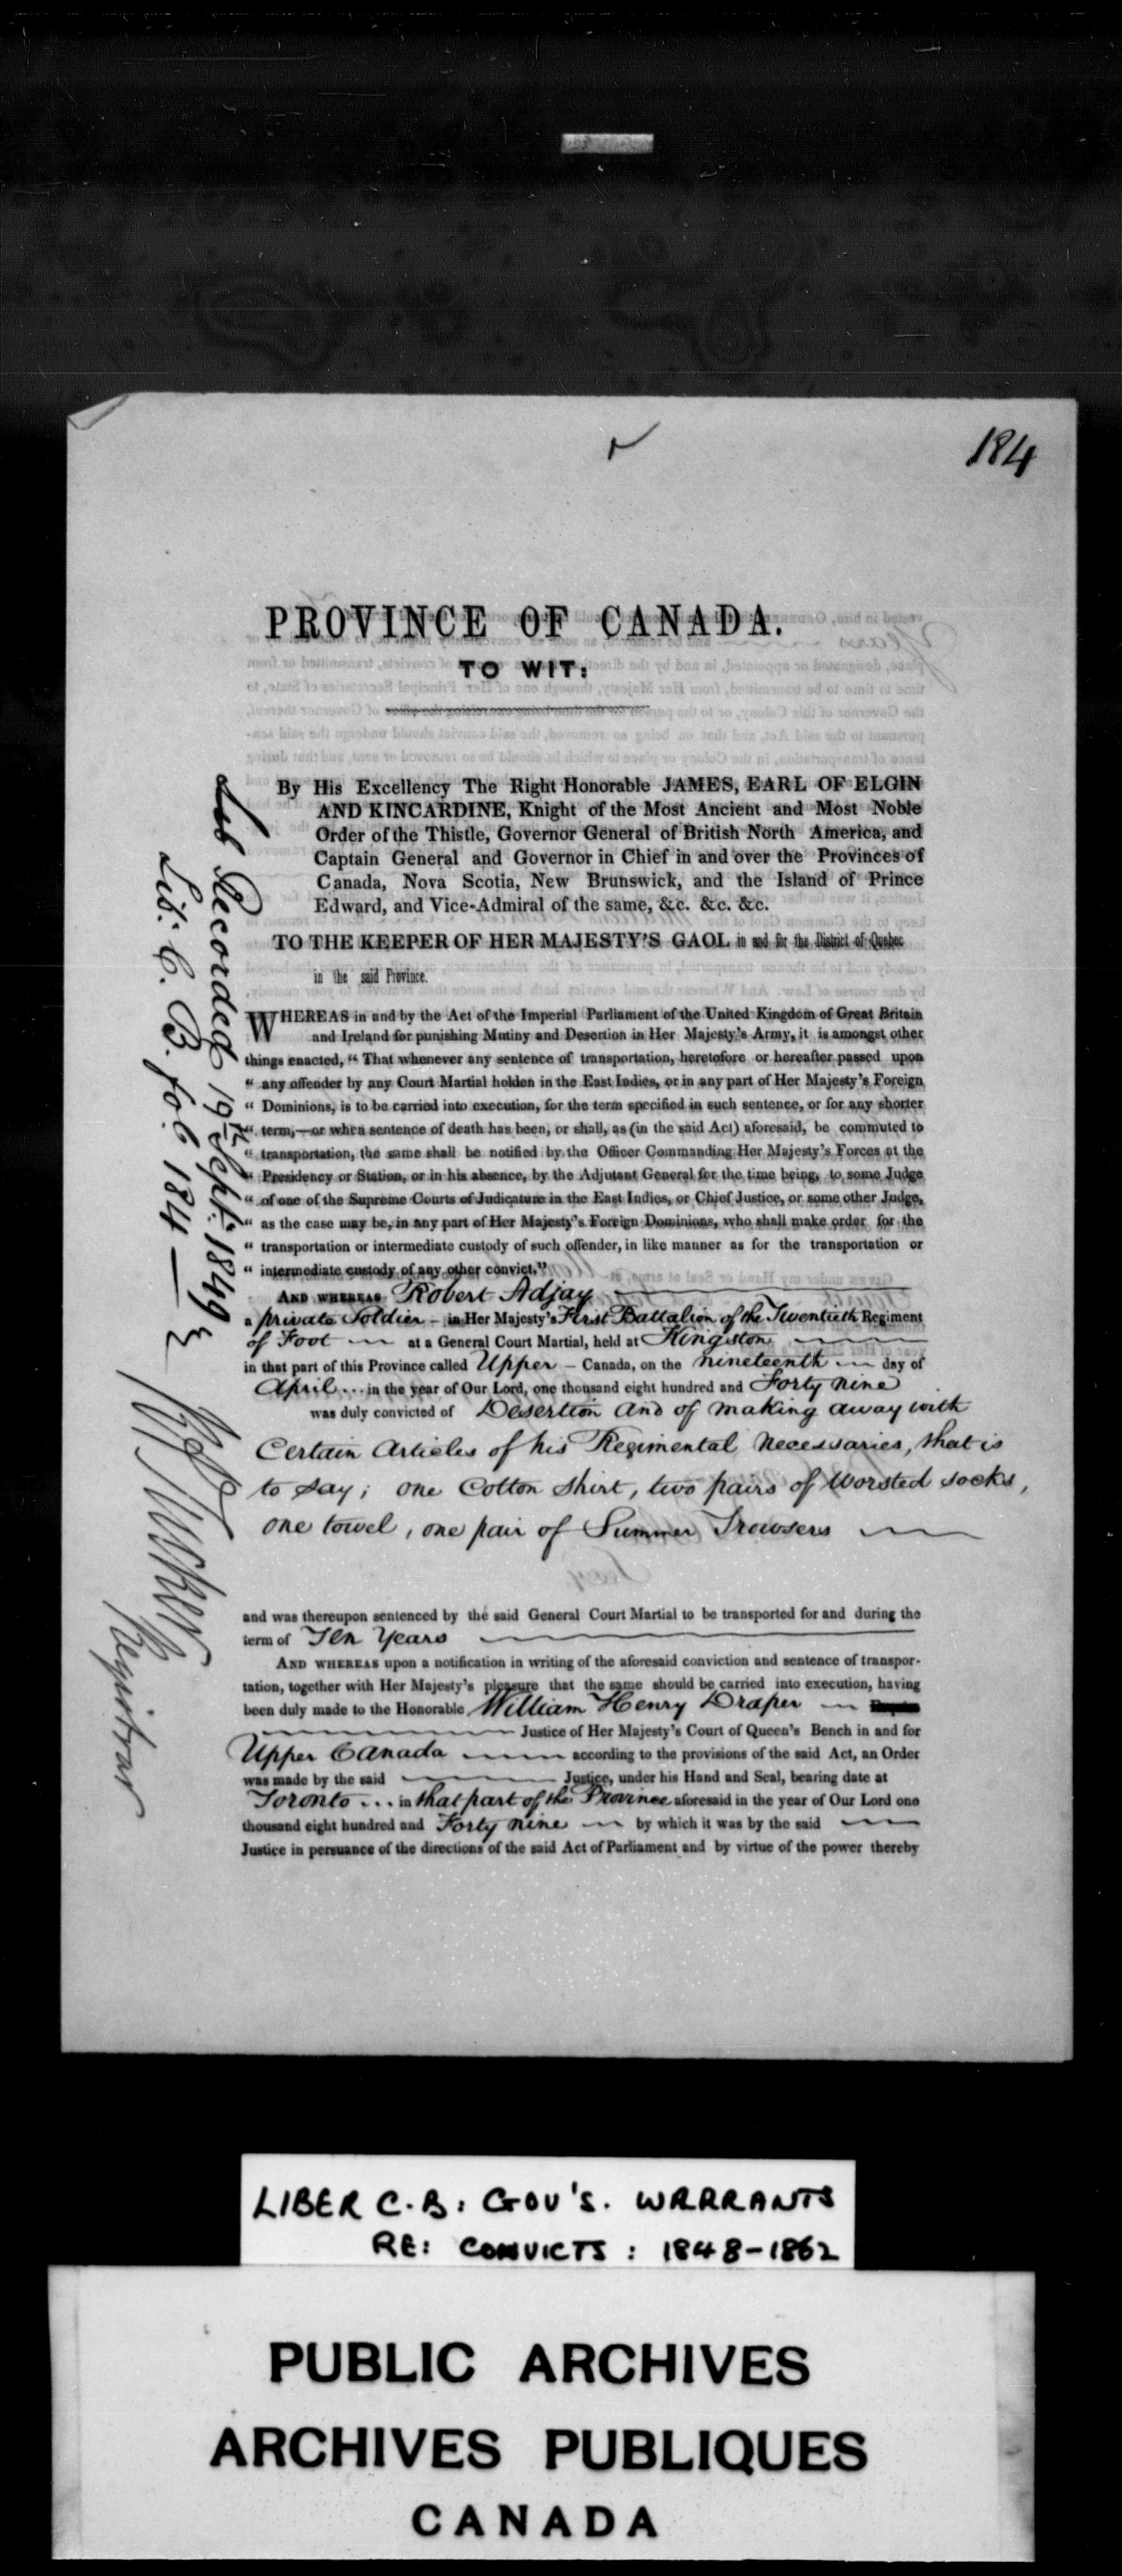 184
PROVINCE OF CANADA.
TO WIT:
By His Excellency The Right Honorable JAMES, EARL OF ELGIN
AND KINCARDINE, Knight of the Most Ancient and Most Noble
Order of the Thistle, Governor General of British North America, and
Captain General and Governor in Chief in and over the Provinces of
Canada, Nova Scotia, New Brunswick, and the Island of Prince
Edward, and Vice-Admiral of the same, &c. &c. &c.
TO THE KEEPER OF HER MAJESTY'S GAOL in and for the District of Quebec
in the said Province.
WHEREAS in and by the Act of the Imperial Parliament of the United Kingdom of Great Britain
and Ireland for punishing Mutiny and Desertion in Her Majesty's Army, it is amongst other
things enacted, "That whenever any sentence of transportation, heretofore or hereafter passed upon
" any offender by any Court Martial holden in the East Indies, or in any part of Her Majesty's Foreign
" Dominions, is to be carried into execution, for the term specified in such sentence, or for any shorter
" term,—or when sentence of death has been, or shall, as (in the said Act) aforesaid, be commuted to
" transportation, the same shall be notified by the Officer Commanding Her Majesty's Forces at the
" Presidency or Station, or in his absence, by the Adjutant General for the time being, to some Judge
" of one of the Supreme Courts of Judicature in the East Indies, or Chief Justice, or some other Judge,
" as the case may be, in any part of Her Majesty's Foreign Dominions, who shall make order for the
" transportation or intermediate custody of such offender, in like manner as for the transportation or
" intermediate custody of any other convict."
AND WHEREAS Robert Adjay
a private Soldier – in Her Majesty's First Battalion of the Twentieth Regiment
of Foot — at a General Court Martial, held at Kingston
in that part of this Province called Upper – Canada, on the nineteenth — day of
April ... in the year of Our Lord, one thousand eight hundred and Forty nine
was duly convicted of Desertion and of making away with
Certain Articles of his Regimental Necessaries, that is
to say; one Cotton Shirt, two pairs of Worsted socks,
one towel, one pair of Summer Trowsers
and was thereupon sentenced by the said General Court Martial to be transported for and during the
term of Ten Years
AND WHEREAS upon a notification in writing of the aforesaid conviction and sentence of transpor-
tation, together with Her Majesty's pleasure that the same should be carried into execution, having
been duly made to the Honorable William Henry Draper
Justice of Her Majesty's Court of Queen's Bench in and for
Upper Canada — according to the provisions of the said Act, an Order
was made by the said — Justice, under his Hand and Seal, bearing date at
Toronto ... in that part of the Province aforesaid in the year of Our Lord one
thousand eight hundred and Forty nine — by which it was by the said —
Justice in persuance of the directions of the said Act of Parliament and by virtue of the power thereby
Recorded 19th Sept: 1849
Lib: C. B. fo: 184
Registrar
LIBER C.B: GOV'S. WARRANTS
RE: CONVICTS: 1848-1862
PUBLIC ARCHIVES
ARCHIVES PUBLIQUES
CANADA